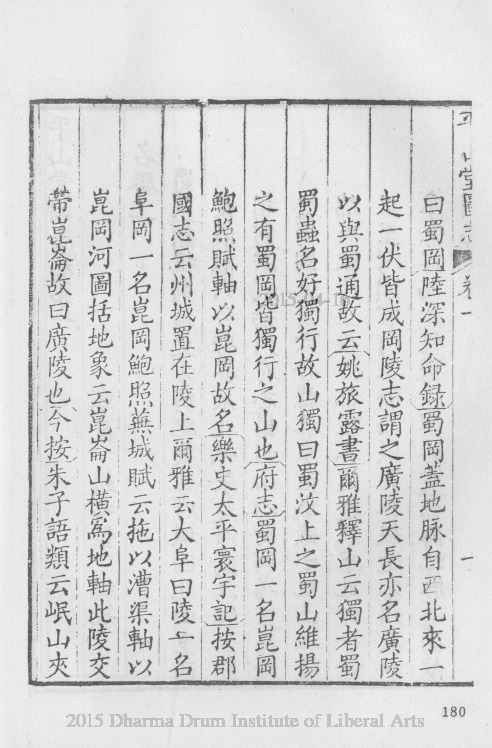 平山堂圖志 卷一 一
曰蜀岡陸深知命録蜀岡蓋地脉自西北來一
起一伏皆成岡陵志謂之廣陵天長亦名廣陵
以與蜀通故云姚旅露書爾雅釋山云獨者蜀
蜀蟲名好獨行故山獨曰蜀汶上之蜀山維揚
之有蜀岡皆獨行之山也府志蜀岡一名崑岡
鮑照賦軸以崑岡故名樂史太平寰宇記按郡
國志云州城置在陵上爾雅云大阜曰陵一名
阜岡一名崑岡鮑照蕪城賦云拖以漕渠軸以
崑岡河圖括地象云崑崙山橫爲地軸此陵交
帶崑崙故曰廣陵也今按朱子語類云岷山夾
180
2015 Dharma Drum Institute of Liberal Arts